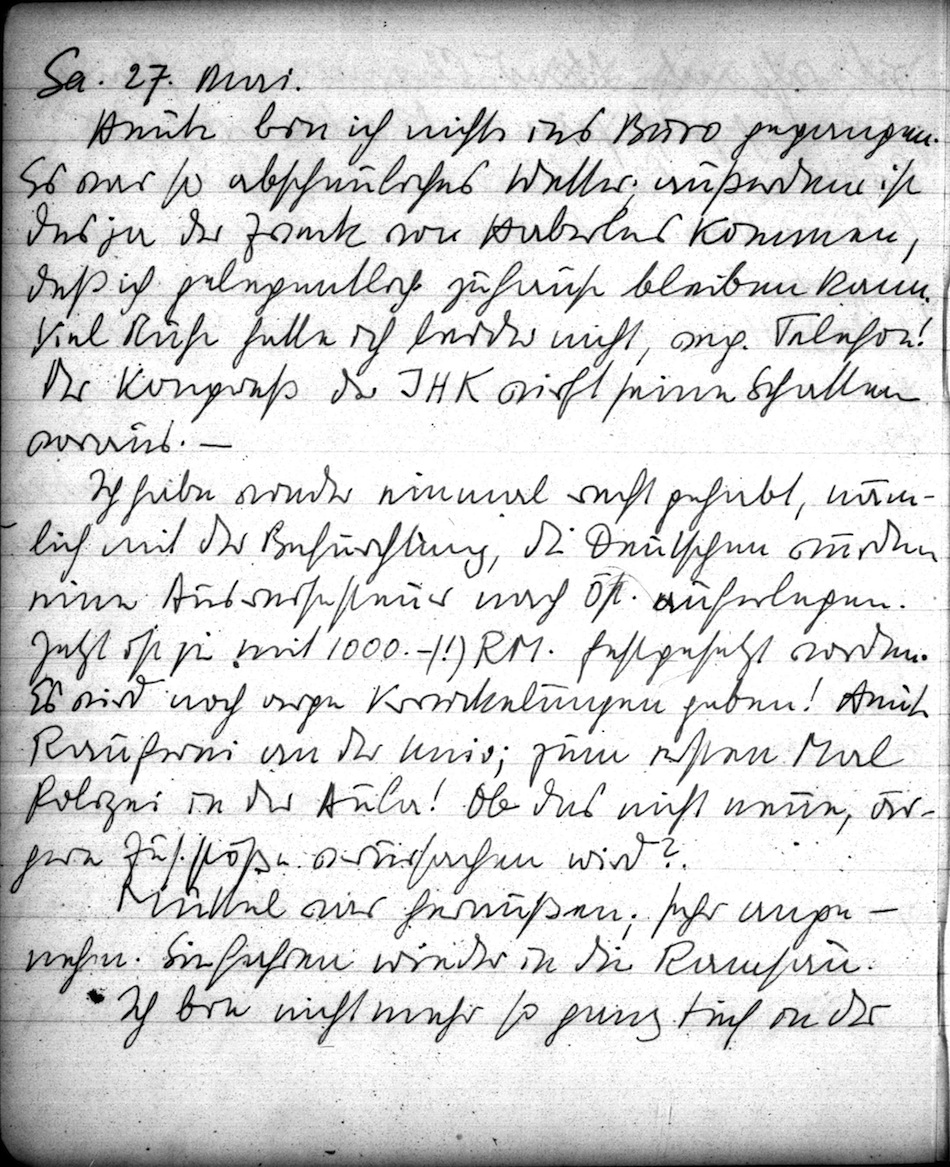 Sa. 27. Mai.
Heute bin ich nicht ins Büro gegangen.
Es war so abscheuliches Wetter; außerdem ist
das ja der Zweck von Haberles Kommen,
daß ich gelegentlich zuhause bleiben kann.
Viel Ruhe hatte ich leider nicht, weg. Telefon!
Der Kongreß der IHK wirft seine Schatten
voraus. —
Ich habe wieder einmal recht gehabt, näm-
lich mit der Befürchtung, die Deutschen würden
eine Ausreisesteuer nach Öst. auferlegen.
Jetzt ist sie mit 1000.-(!) RM. festgesetzt worden.
Es wird noch arge Verwickelungen geben! Heute
Rauferei an der Univ; zum ersten Mal
Polizei in der Aula! Ob das nicht neue, är-
gere Zus.stöße verursachen wird?
war heraußen; sehr ange-
nehm. Sie fahren wieder in die Ramsau.
Ich bin nicht mehr so ganz tief in der